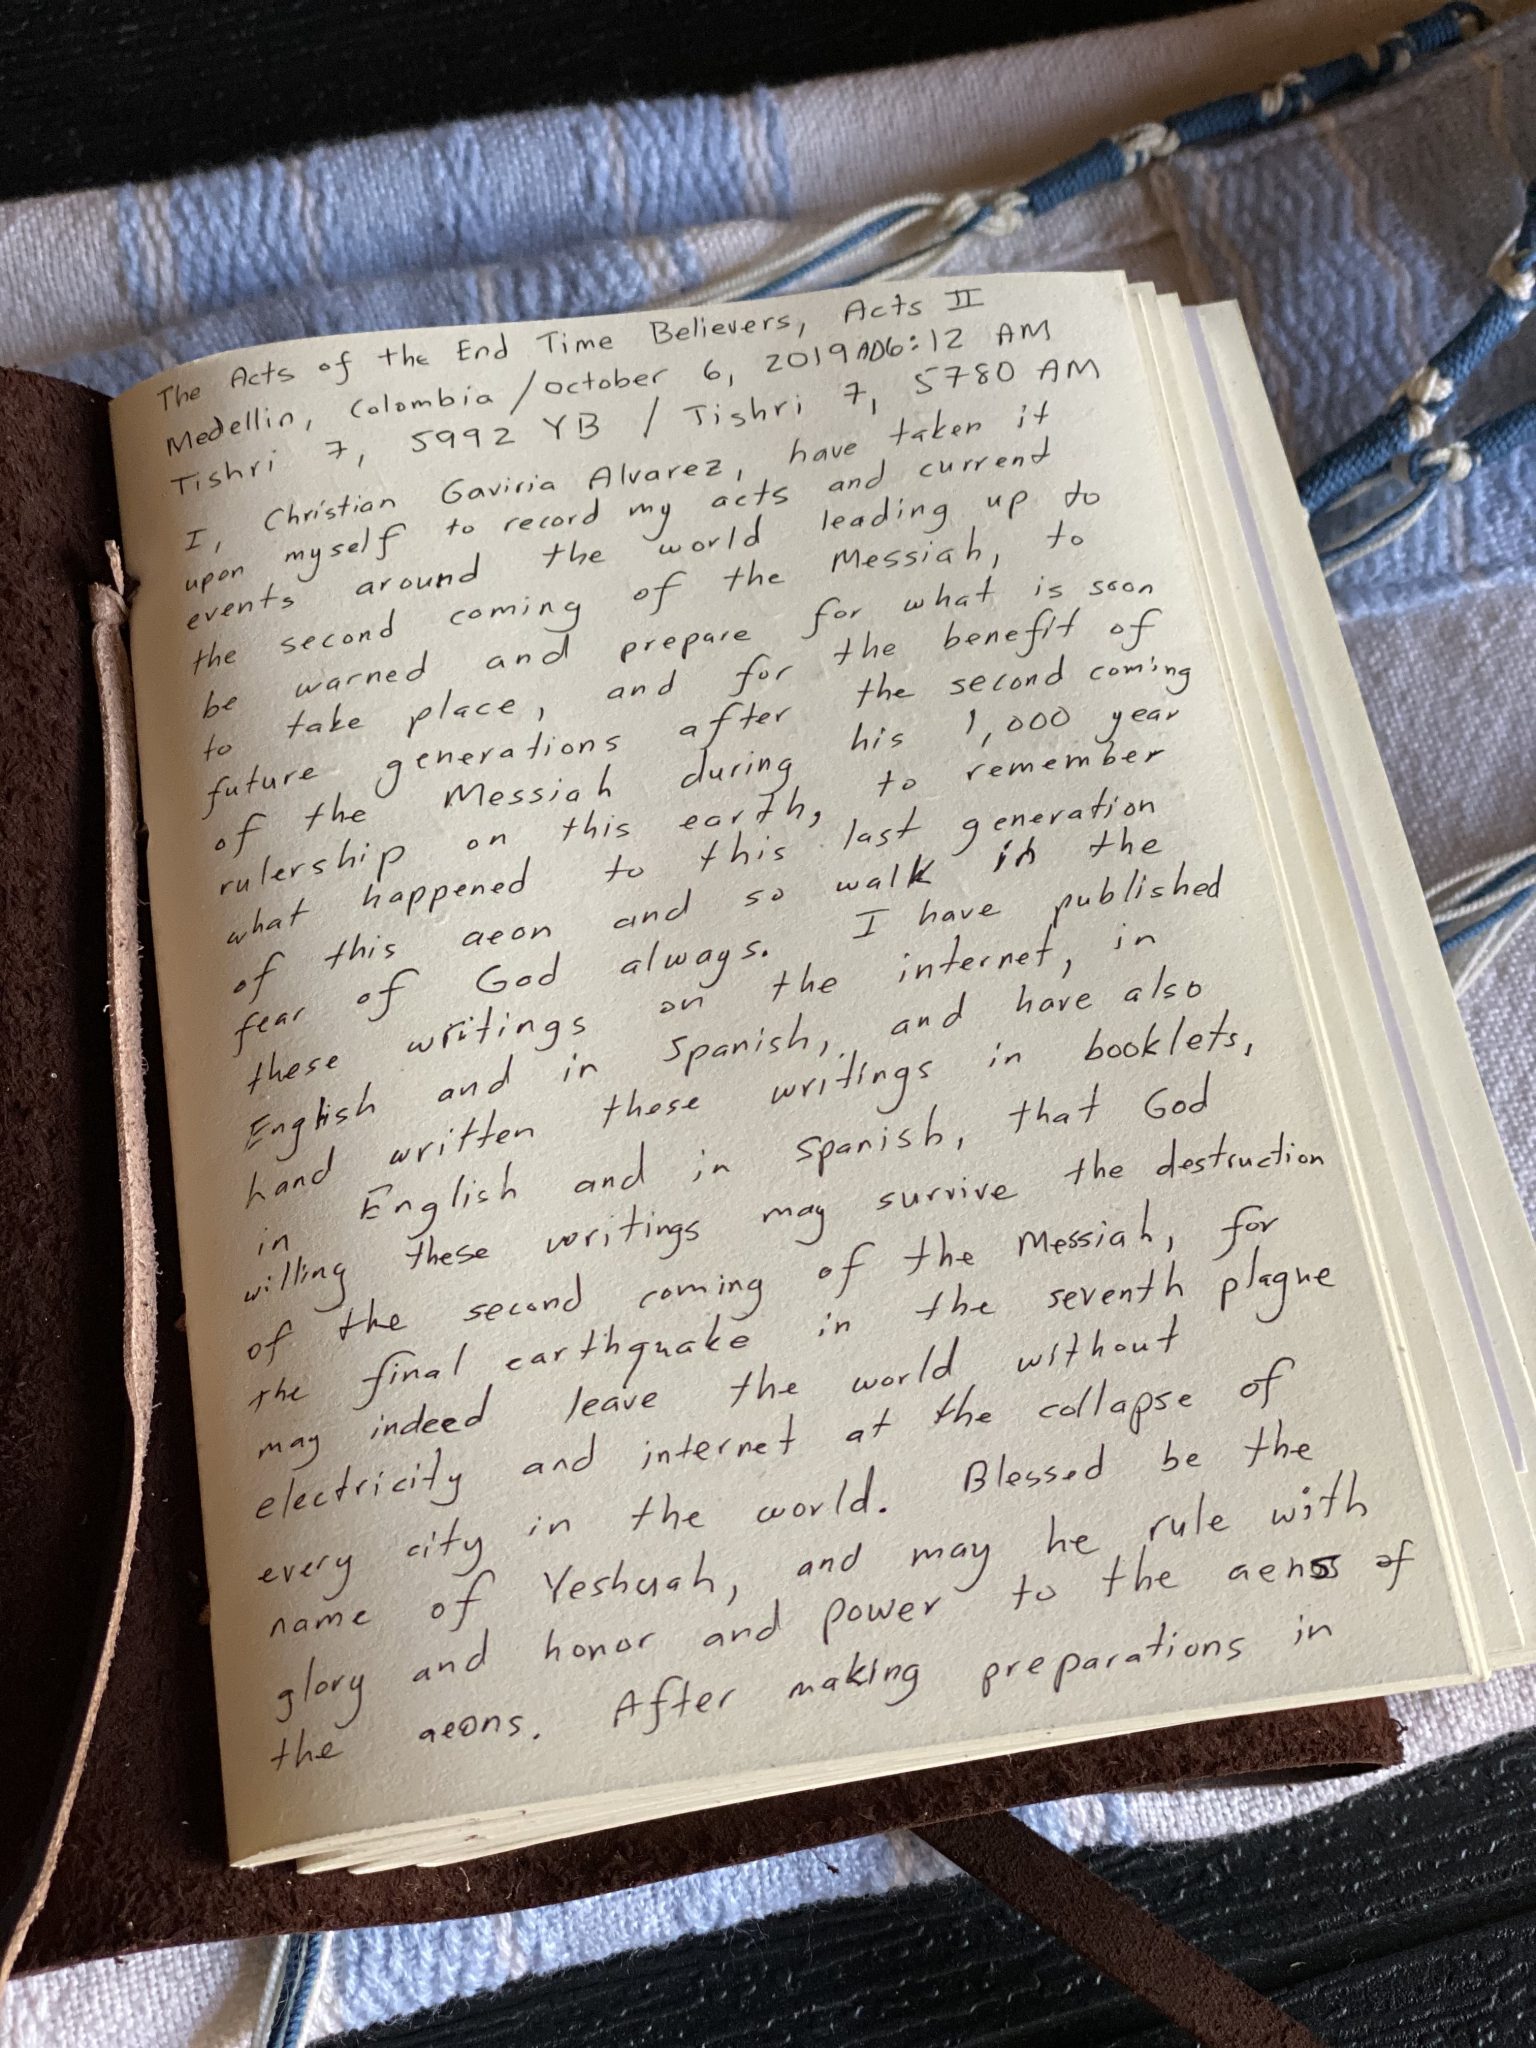 The Acts of the End Time Believers, Acts II
Medellin, Colombia / October 6, 2019 AD 6:12 AM
Tishri 7, 5992 YB / Tishri 7, 5780 AM
I, Christian Gaviria Alvarez, have taken it
upon myself to record my acts and current
events around the world leading up to
the second coming of the Messiah, to
be warned and prepare for what is soon
to take place, and for the benefit of
future generations after the second coming
of the Messiah during his 1,000 year
rulership on this earth, to remember
what happened to this last generation
of this aeon and so walk in the
fear of God always. I have published
these writings on the internet, in
English and in Spanish, and have also
hand written these writings in booklets,
in English and in Spanish, that God
willing these writings may survive the destruction
of the second coming of the Messiah, for
the final earthquake in the seventh plague
may indeed leave the world without
electricity and internet at the collapse of
every city in the world. Blessed be the
name of Yeshuah, and may he rule with
glory and honor and power to the aens of
the aeons. After making preparations in